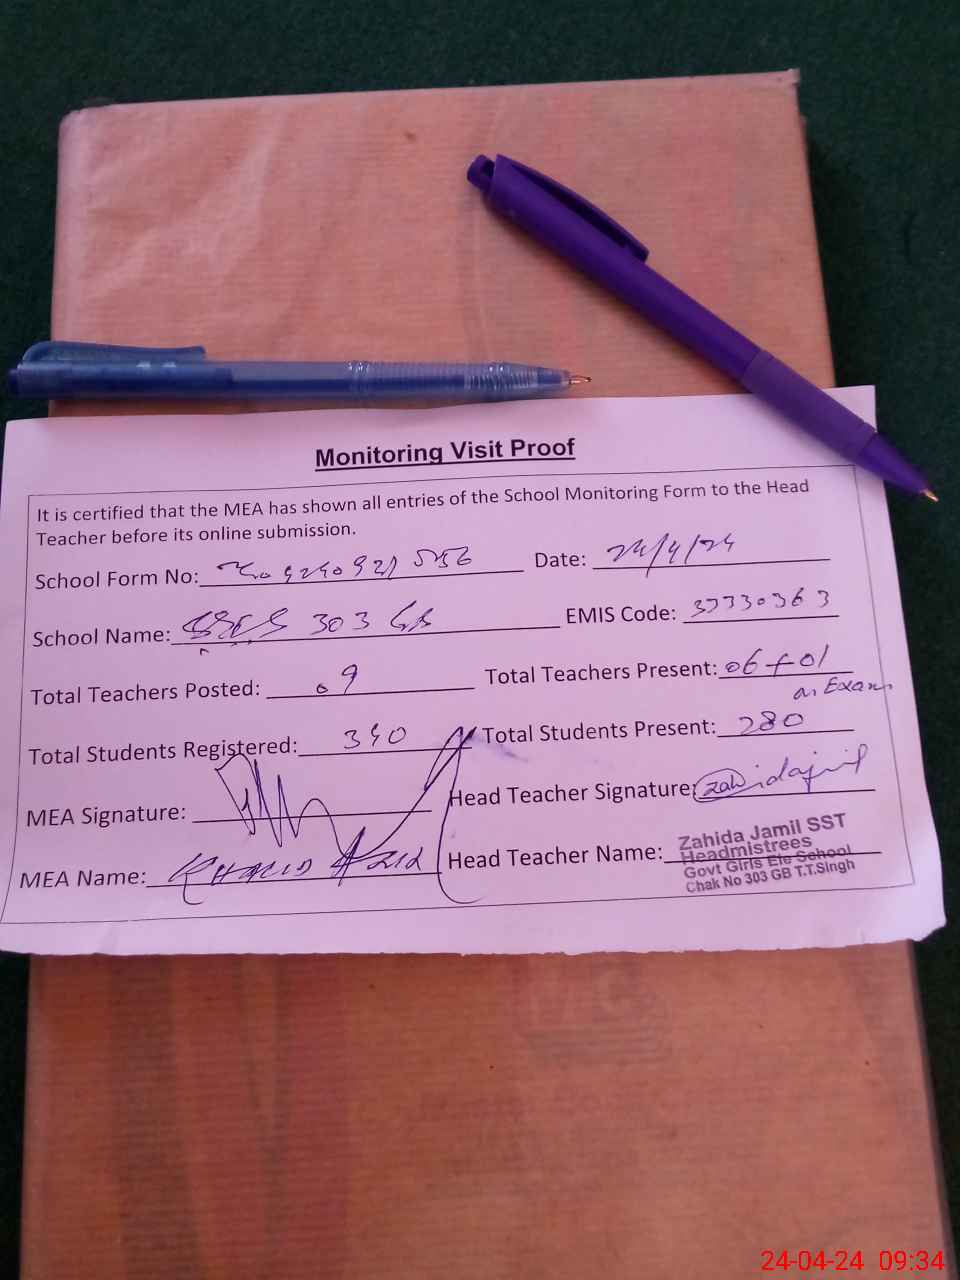 Monitoring Visit Proof
It is certified that the MEA has shown all entries of the School Monitoring Form to the Head
Teacher before its online submission.
School Form No: Date: 24/4/24
School Name: 303 GB EMIS Code: 37330363
Total Teachers Posted: 09 Total Teachers Present: 06+01
on Exam
Total Students Registered: 340 Total Students Present: 280
MEA Signature: Head Teacher Signature: zahidajmil
MEA Name: Khalid Head Teacher Name: Zahida Jamil SST
Headmistrees
Govt Girls Ele School
Chak No 303 GB T.T.Singh
24-04-24 09:34